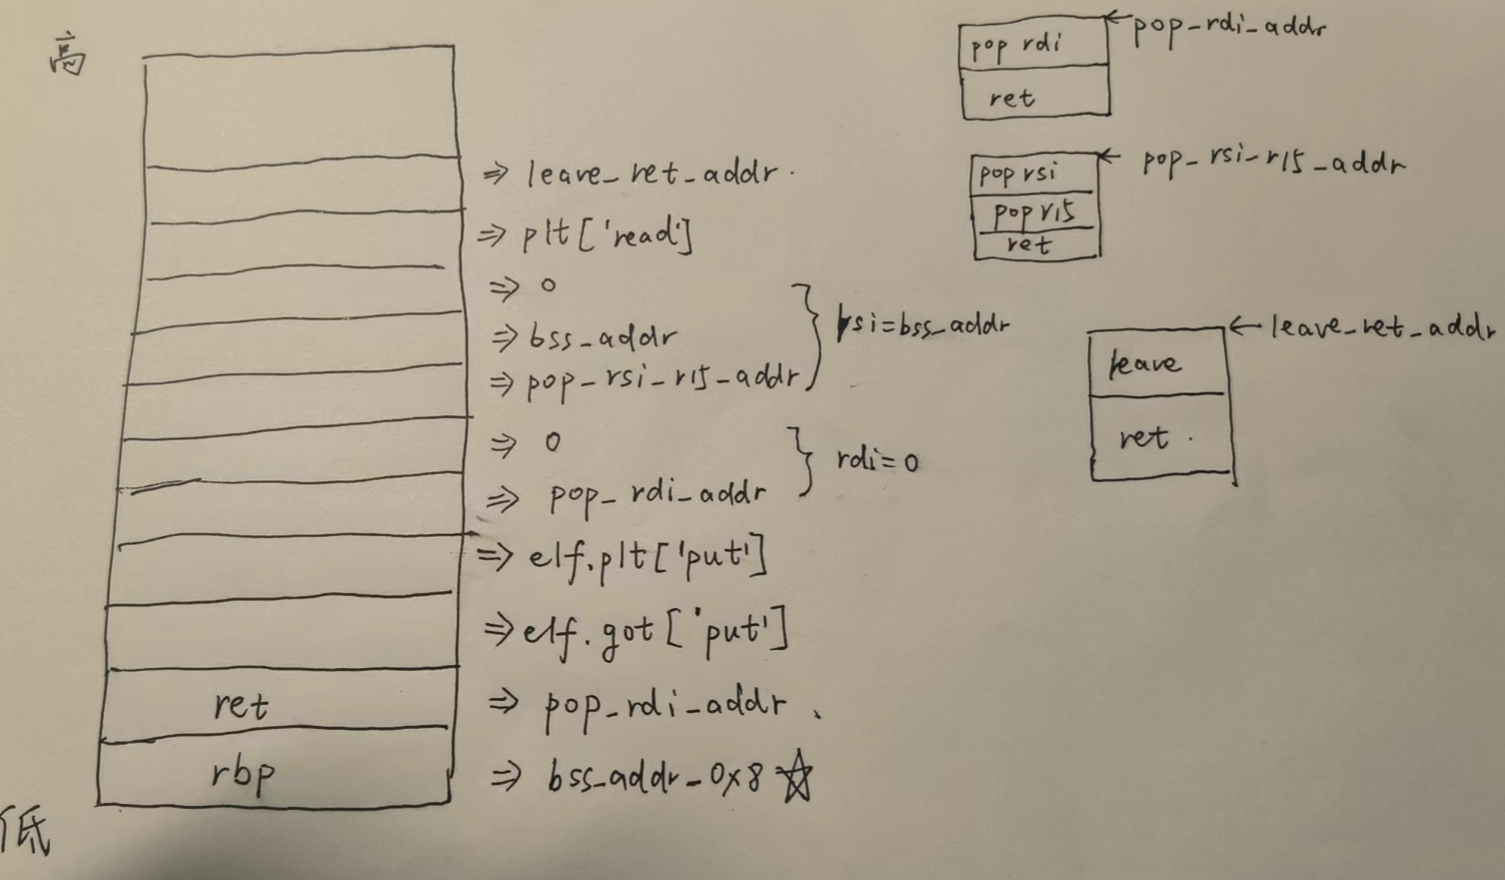 高
⇒ leave_ret_addr.
⇒ plt['read']
⇒ 0
⇒ bss_addr
⇒ pop_rsi_r15_addr
rsi=bss_addr
⇒ 0
⇒ pop_rdi_addr
rdi=0
⇒ elf.plt['put']
⇒ elf.got['put']
ret ⇒ pop_rdi_addr 、
rbp ⇒ bss_addr_0x8 ☆
低
pop rdi ← pop_rdi_addr
ret
pop rsi ← pop_rsi_r15_addr
pop r15
ret
leave ← leave_ret_addr
ret .